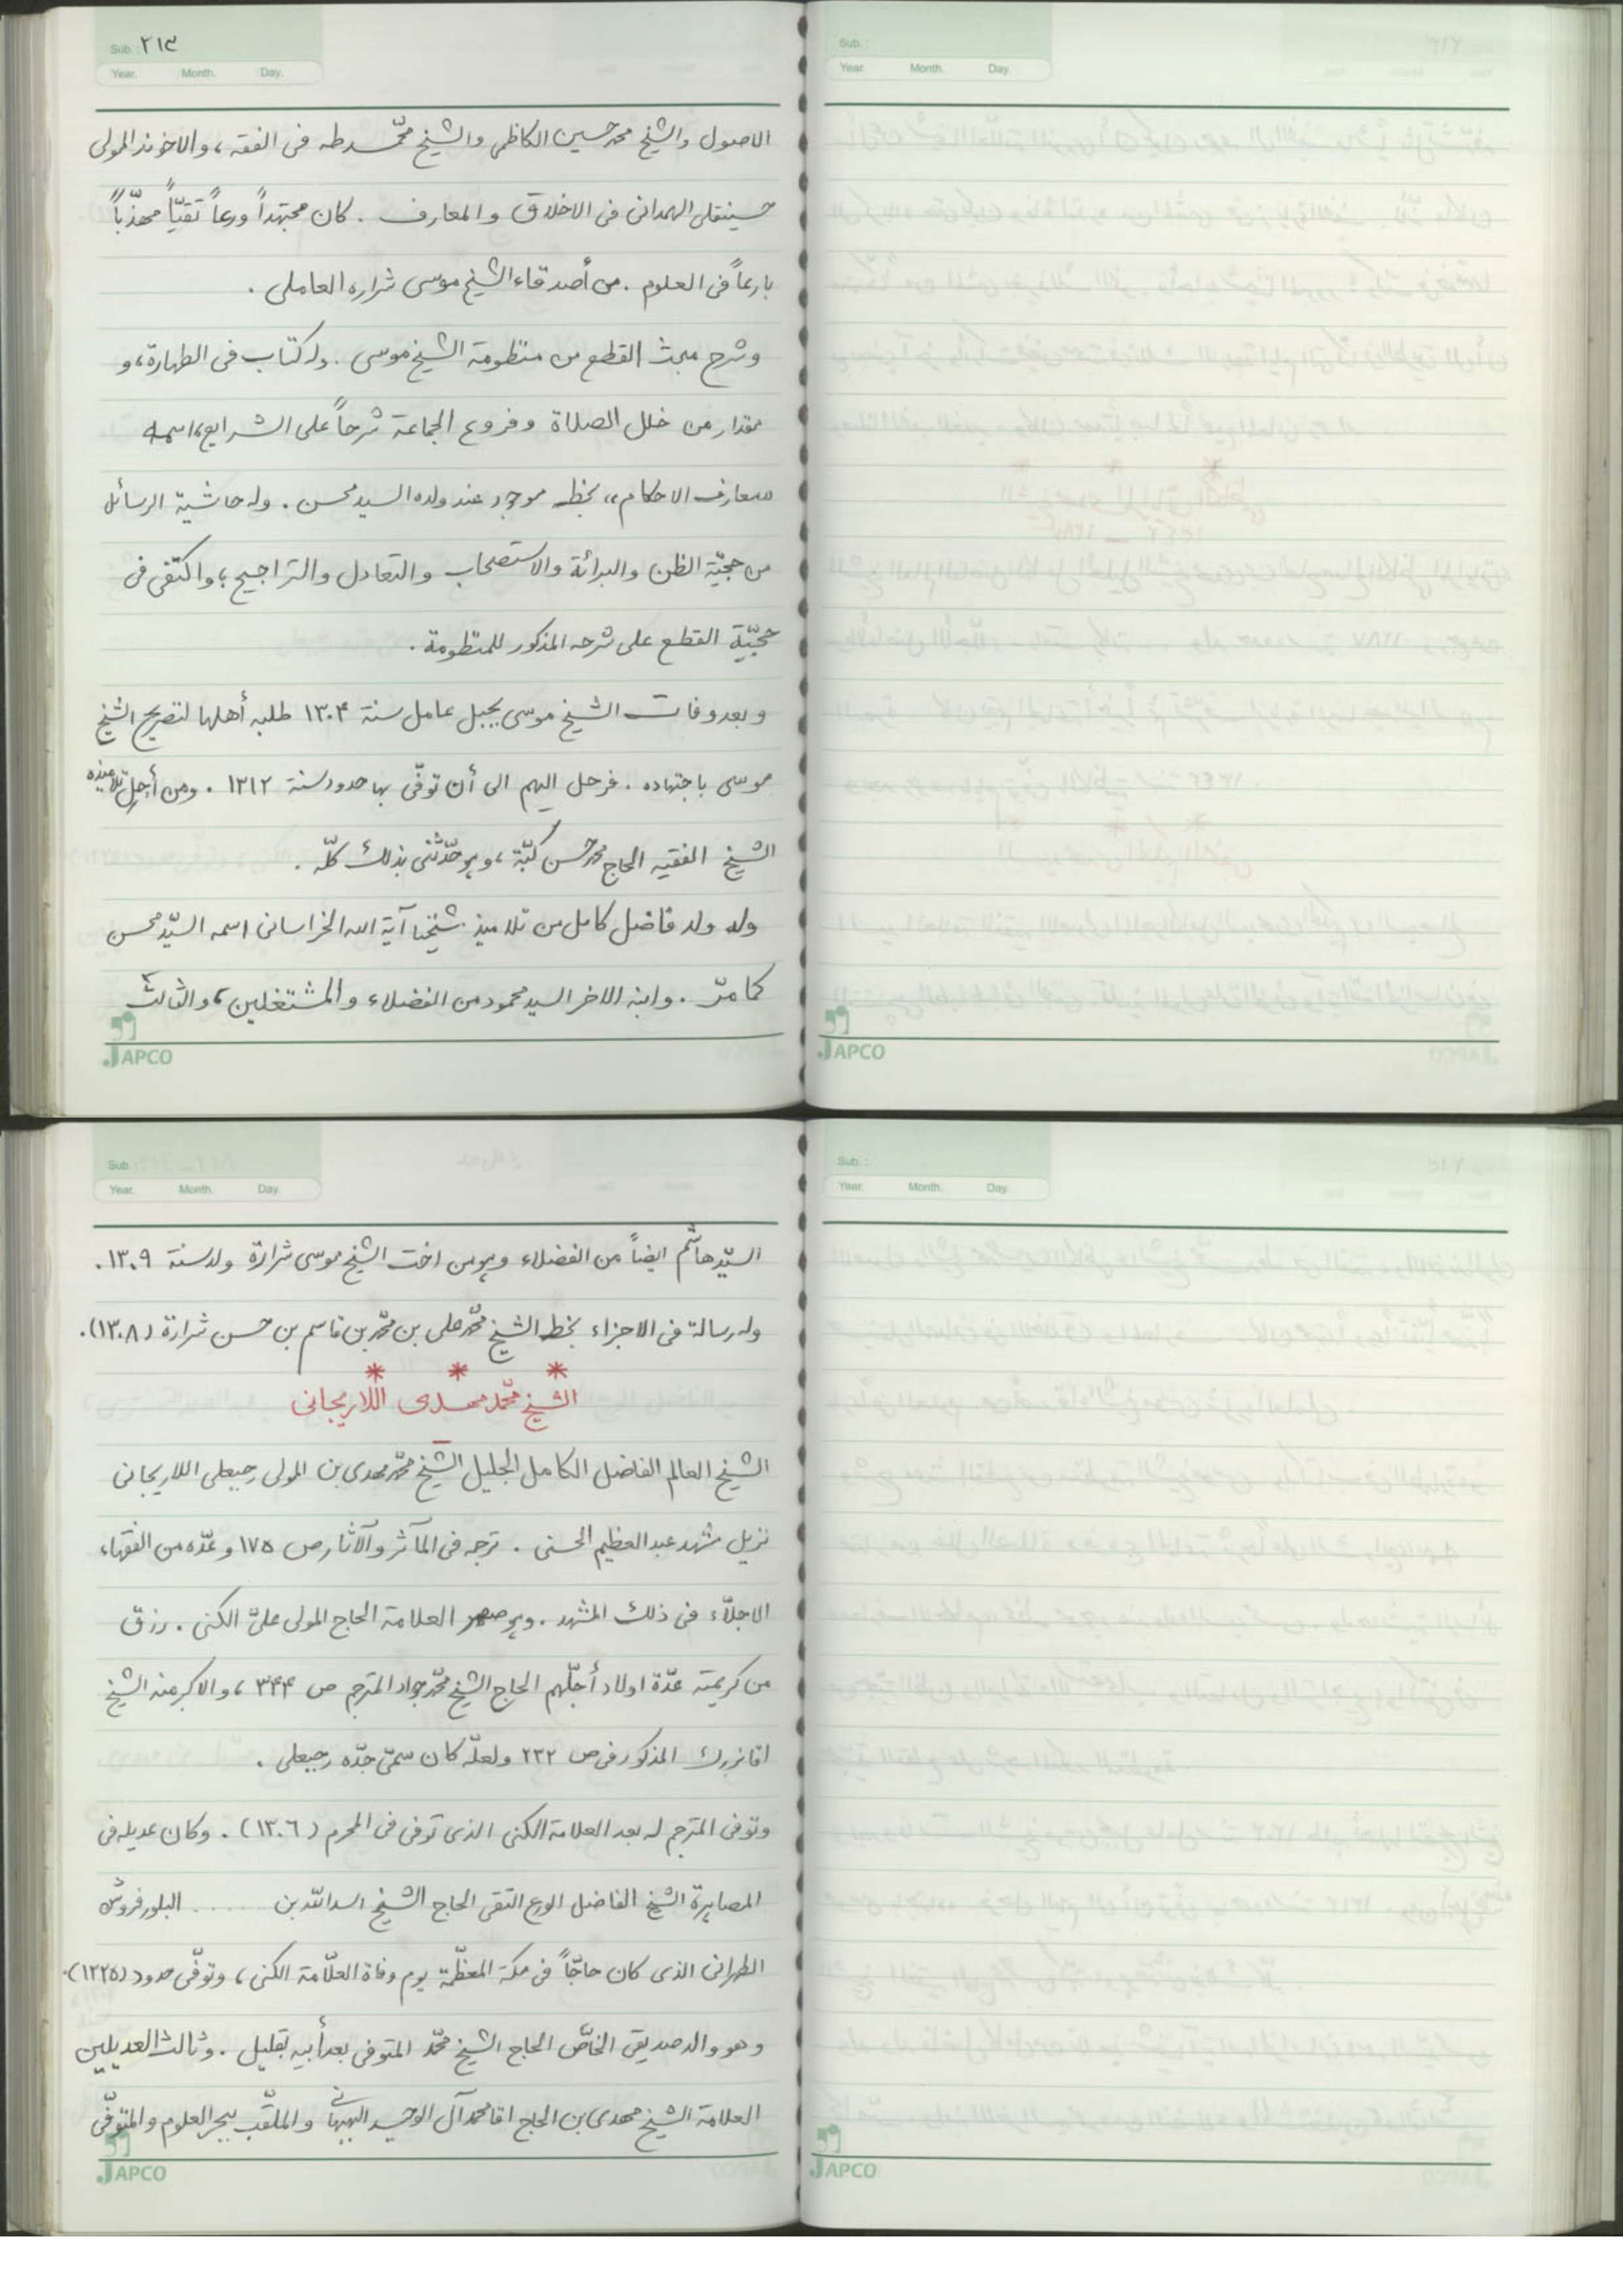 Sub. : ٢١٣
Year. Month. Day.
الاصول والشيخ محمد حسين الكاظمى والشيخ محمّد طه فى الفقه، والاخوند المولى
حسينقلى الهمدانى فى الاخلاق والمعارف . كان مجتهداً ورعاً تقيّاً مهذّباً
بارعاً فى العلوم . من أصدقاء الشيخ موسى شراره العاملى .
وشرح مبحث القطع من منظومة الشيخ موسى . وله كتاب فى الطهارة، و
مقدار من خلل الصلاة وفروع الجماعة شرحاً على الشرايع، اسمه
«معارف الاحكام»، بخطه موجود عند ولده السيد محسن . وله حاشية الرسائل
من حجيّة الظن والبرائة والاستصحاب والتعادل والتراجيح؛ واكتفى فى
حجيّة القطع على شرحه المذكور للمنظومة .
وبعد وفات الشيخ موسى بجبل عامل سنة ١٣٠۴ طلبه أهلها لتصريح الشيخ
موسى باجتهاده . فرحل اليهم الى أن توفّى بها حدود سنة ١٣١٢ . ومن أجلّ تلاميذه
الشيخ الفقيه الحاج محمد حسن كبّة، وهو حدّثنى بذلك كلّه .
وله ولد فاضل كامل من تلاميذ شيخنا آية الله الخراسانى اسمه السيّد محسن
كما مرّ . وابنه الاخر السيد محمود من الفضلاء والمشتغلين، والثالث
JAPCO
Sub. :
Year. Month. Day.
JAPCO
Sub. :
Year. Month. Day.
السيّد هاشم ايضاً من الفضلاء وهو من اخت الشيخ موسى شرارة ولد سنة ١٣٠٩ .
وله رسالة فى الاجزاء بخط الشيخ محمّد على بن محمّد بن قاسم بن حسن شرارة (١٣٠٨).
* * *
الشيخ محمّد مهدى اللاريجانى
الشيخ العالم الفاضل الكامل الجليل الشيخ محمّد مهدى بن المولى رجبعلى اللاريجانى
نزيل مشهد عبد العظيم الحسنى . ترجمه فى المآثر والآثار ص ١٧۵ وعدّه من الفقهاء
الاجلّاء فى ذلك المشهد . وهو صهر العلامة الحاج المولى علىّ الكنى . رزق
من كريمته عدّة اولاد أجلّهم الحاج الشيخ محمّد جواد المترجم ص ٣۴۴، والاكبر منه الشيخ
اقا بزرك المذكور فى ص ٢٣٢ ولعلّه كان سمىّ جدّه رجبعلى .
وتوفى المترجم له بعد العلامة الكنى الذى توفى فى المحرم (١٣٠٦) . وكان عديله فى
المصاهرة الشيخ الفاضل الورع التقى الحاج الشيخ اسد اللّه بن ...... البلور فروش
الطهرانى الذى كان حاجّاً فى مكة المعظّمة يوم وفاة العلّامة الكنى، وتوفّى حدود (١٣٢۵).
وهو والد صديقى الخاصّ الحاج الشيخ محمّد المتوفى بعد أبيه بقليل . وثالث العديلين
العلامة الشيخ مهدى بن الحاج اقا محمد آل الوحيد البهبهانى والملقّب ببحر العلوم والمتوفّى
JAPCO
Sub. :
Year. Month. Day.
JAPCO